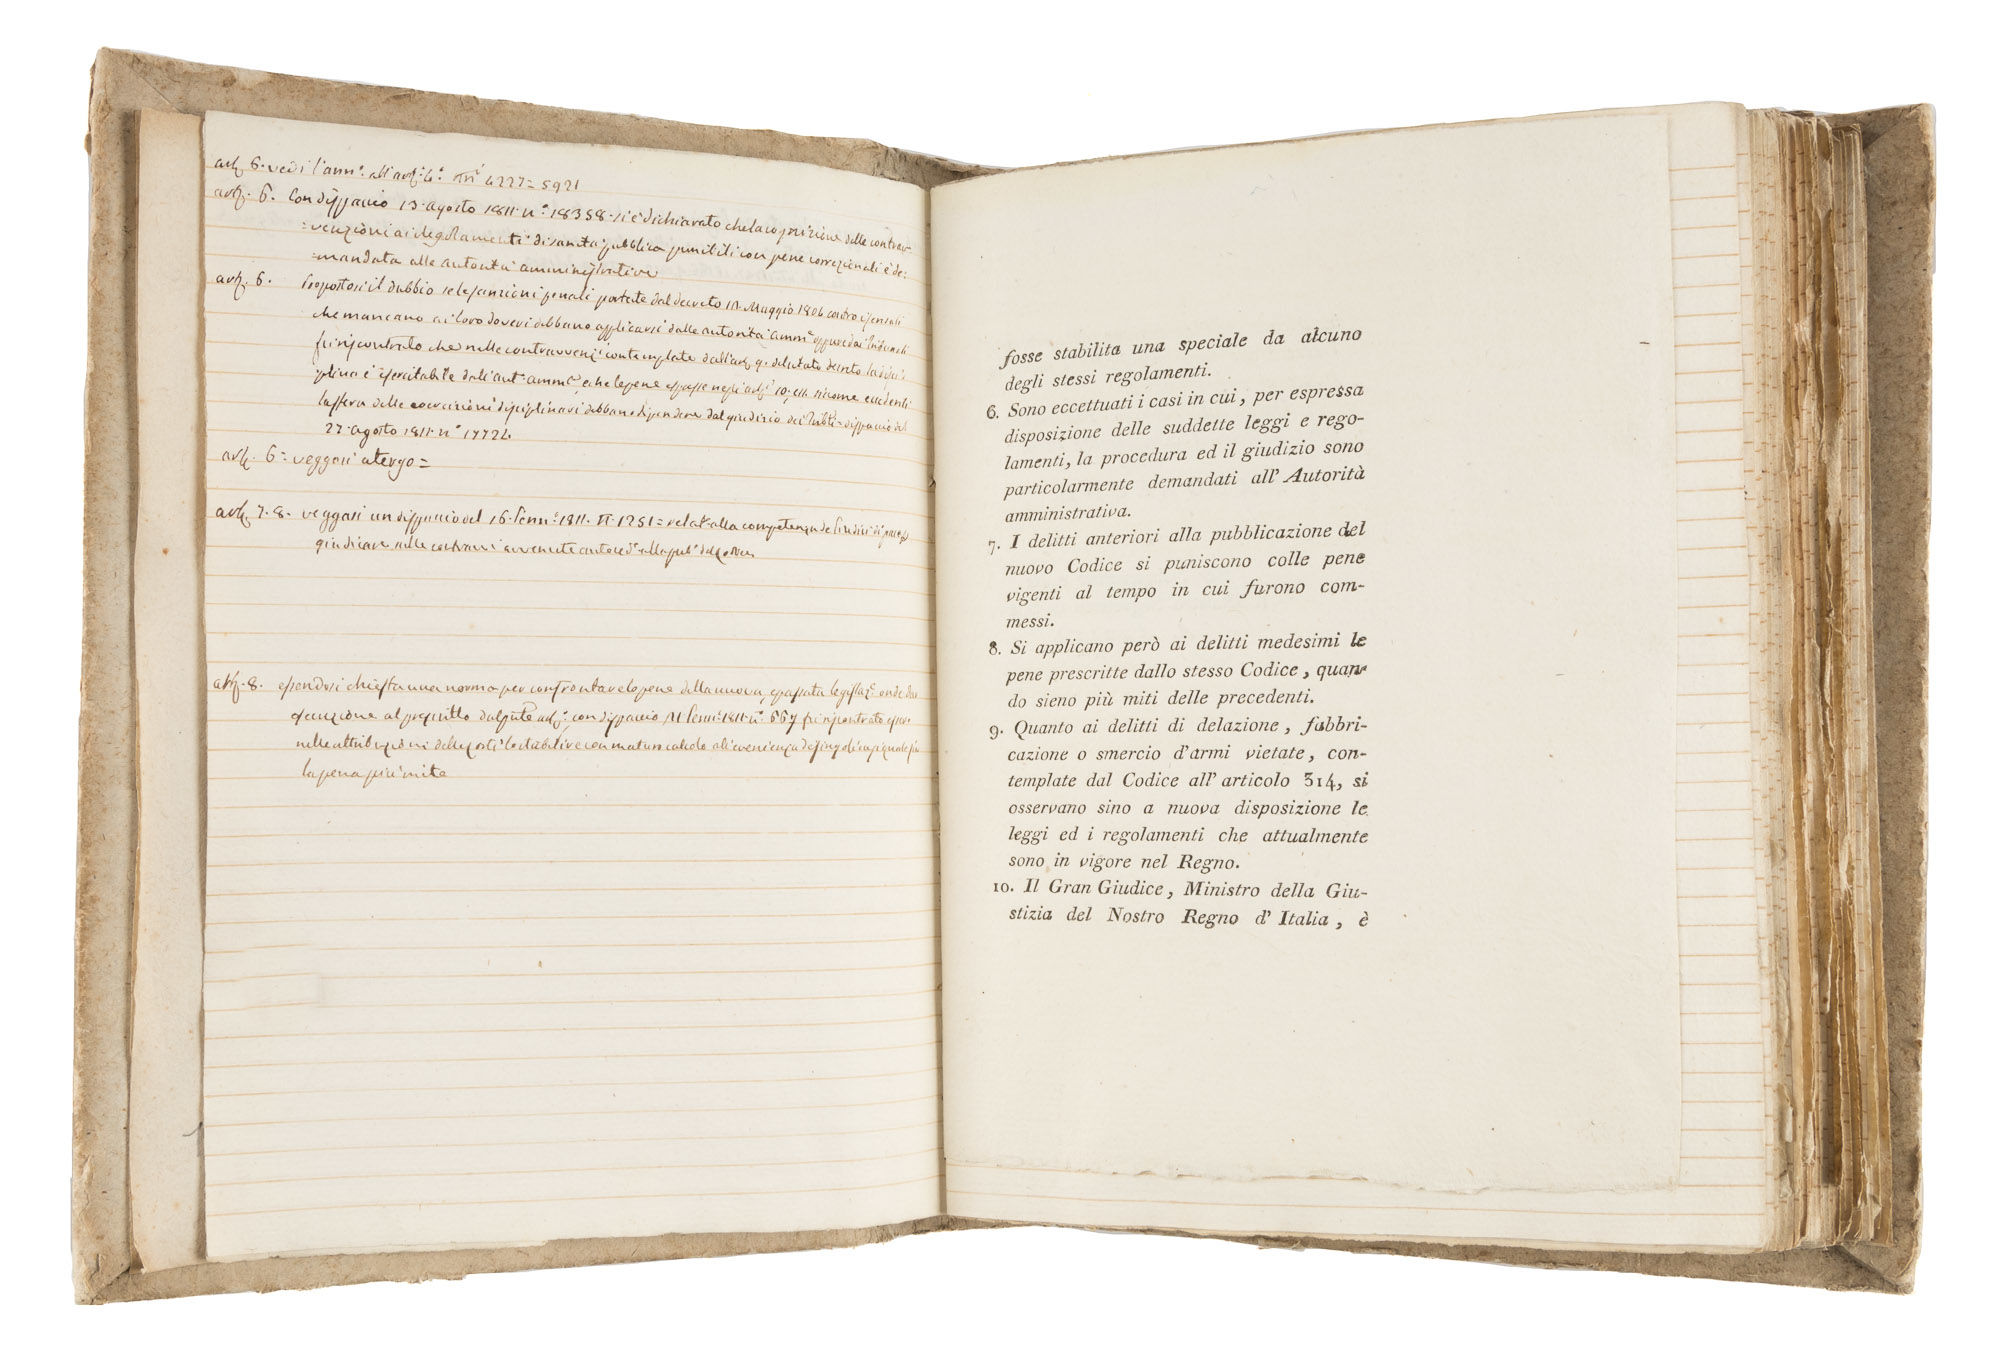 art. 6. vedi l'ann.e all'art. 4.e 4227 = 5921
art. 6. Con dispaccio 13 agosto 1811 n.o 18358 si è dichiarato che la cognizione delle contrav-
=venzioni ai regolamenti di sanità pubblica punibili con pene correzionali è de=
=mandata alle autorità amministrative
art. 6. Propostosi il dubbio se le sanzioni penali portate dal decreto Maggio 1806 contro
che mancano ai loro doveri debbano applicarsi dalle autorità amm.e oppure dai Tribunali
fu riscontrato che nelle contravvenz.i contemplate dall'art. 9. del citato decreto la disci=
plina è esercitabile dall'aut. amm.e, e che le pene espresse negli art.i 10, e 11. siccome eccedenti
la sfera delle coercizioni disciplinari debbano dipendere dal giudizio dei Trib.li = dispaccio del
27 agosto 1811 n.o 17724
art. 6 = veggasi a tergo =
art. 7. 8. veggasi un dispaccio del 16 Genn.o 1811. N. 1251 = relat. alla competenza de Giudici di pace
giudicare nelle contravv.i avvenute
art. 8. essendosi chiesta una norma per confrontare le pene della nuova, e passata legislaz.e onde dare
esecuzione al prescritto dal art.o, con dispaccio 11 Genn.o 1811 n.o 667 fu riscontrato essere
nelle attribuzioni delle corti lo stabilire con maturo calcolo
la pena più mite
fosse stabilita una speciale da alcuno
degli stessi regolamenti.
6. Sono eccettuati i casi in cui, per espressa
disposizione delle suddette leggi e rego-
lamenti, la procedura ed il giudizio sono
particolarmente demandati all' Autorità
amministrativa.
7. I delitti anteriori alla pubblicazione del
nuovo Codice si puniscono colle pene
vigenti al tempo in cui furono com-
messi.
8. Si applicano però ai delitti medesimi le
pene prescritte dallo stesso Codice, quan-
do sieno più miti delle precedenti.
9. Quanto ai delitti di delazione, fabbri-
cazione o smercio d'armi vietate, con-
template dal Codice all' articolo 314, si
osservano sino a nuova disposizione le
leggi ed i regolamenti che attualmente
sono in vigore nel Regno.
10. Il Gran Giudice, Ministro della Giu-
stizia del Nostro Regno d' Italia, è